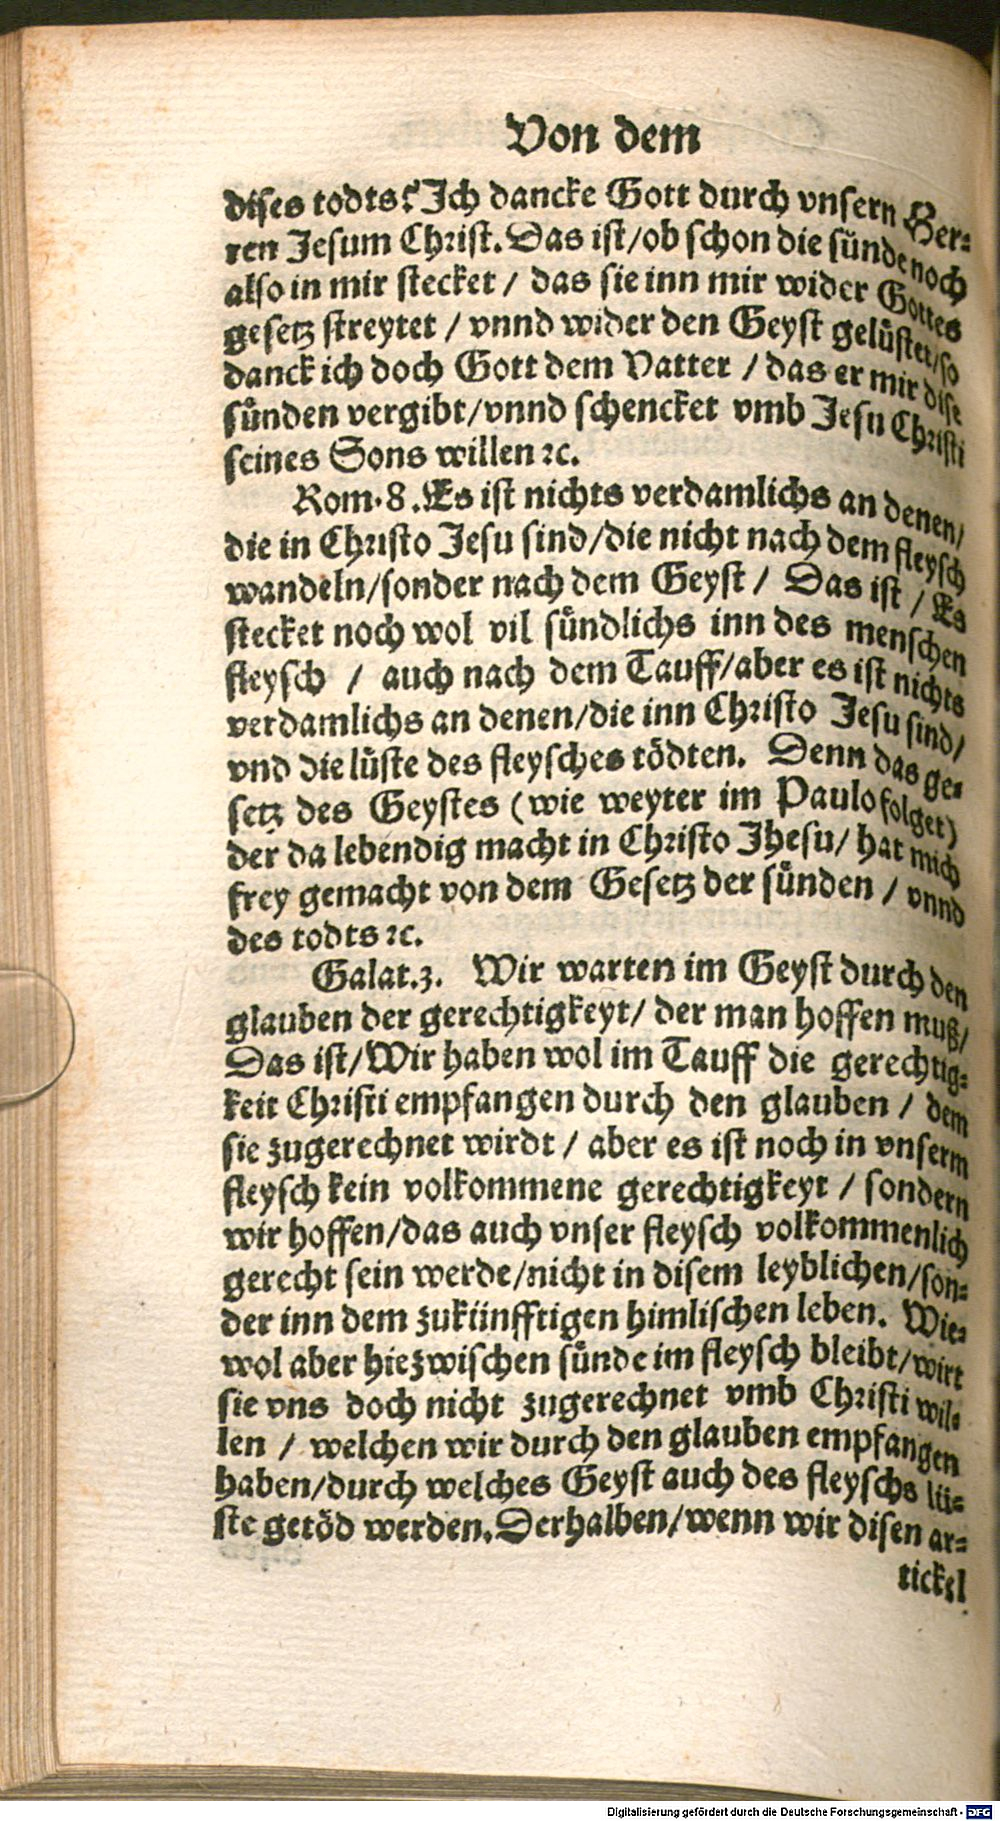 Von dem
dises todts? Ich dancke Gott durch vnsern Her⸗
ren Jesum Christ. Das ist/ob schon die sünde noch
also in mir stecket / das sie inn mir wider Gottes
gesetz streytet / vnnd wider den Geyst gelüstet/so
danck ich doch Gott dem Vatter / das er mir dise
sünden vergibt/vnnd schencket vmb Jesu Christi
seines Sons willen ꝛc.
Rom. 8. Es ist nichts verdamlichs an denen/
die in Christo Jesu sind/die nicht nach dem fleysch
wandeln/sonder nach dem Geyst / Das ist / Es
stecket noch wol vil sündlichs inn des menschen
fleysch / auch nach dem Tauff/aber es ist nichts
verdamlichs an denen/die inn Christo Jesu sind/
vnd die lüste des fleysches tödten. Denn das ge⸗
setz des Geystes (wie weyter im Paulo folget)
der da lebendig macht in Christo Jhesu/ hat mich
frey gemacht von dem Gesetz der sünden / vnnd
des todts ꝛc.
Galat.3. Wir warten im Geyst durch den
glauben der gerechtigkeyt/ der man hoffen muß/
Das ist/Wir haben wol im Tauff die gerechtig⸗
keit Christi empfangen durch den glauben / dem
sie zugerechnet wirdt / aber es ist noch in vnserm
fleysch kein volkommene gerechtigkeyt / sondern
wir hoffen/das auch vnser fleysch volkommenlich
gerecht sein werde/nicht in disem leyblichen/son⸗
der inn dem zukünfftigen himlischen leben. Wie⸗
wol aber hiezwischen sünde im fleysch bleibt/wirt
sie vns doch nicht zugerechnet vmb Christi wil⸗
len / welchen wir durch den glauben empfangen
haben/durch welches Geyst auch des fleyschs lü⸗
ste getöd werden. Derhalben/wenn wir disen ar⸗
tickel
Digitalisierung gefördert durch die Deutsche Forschungsgemeinschaft - DFG